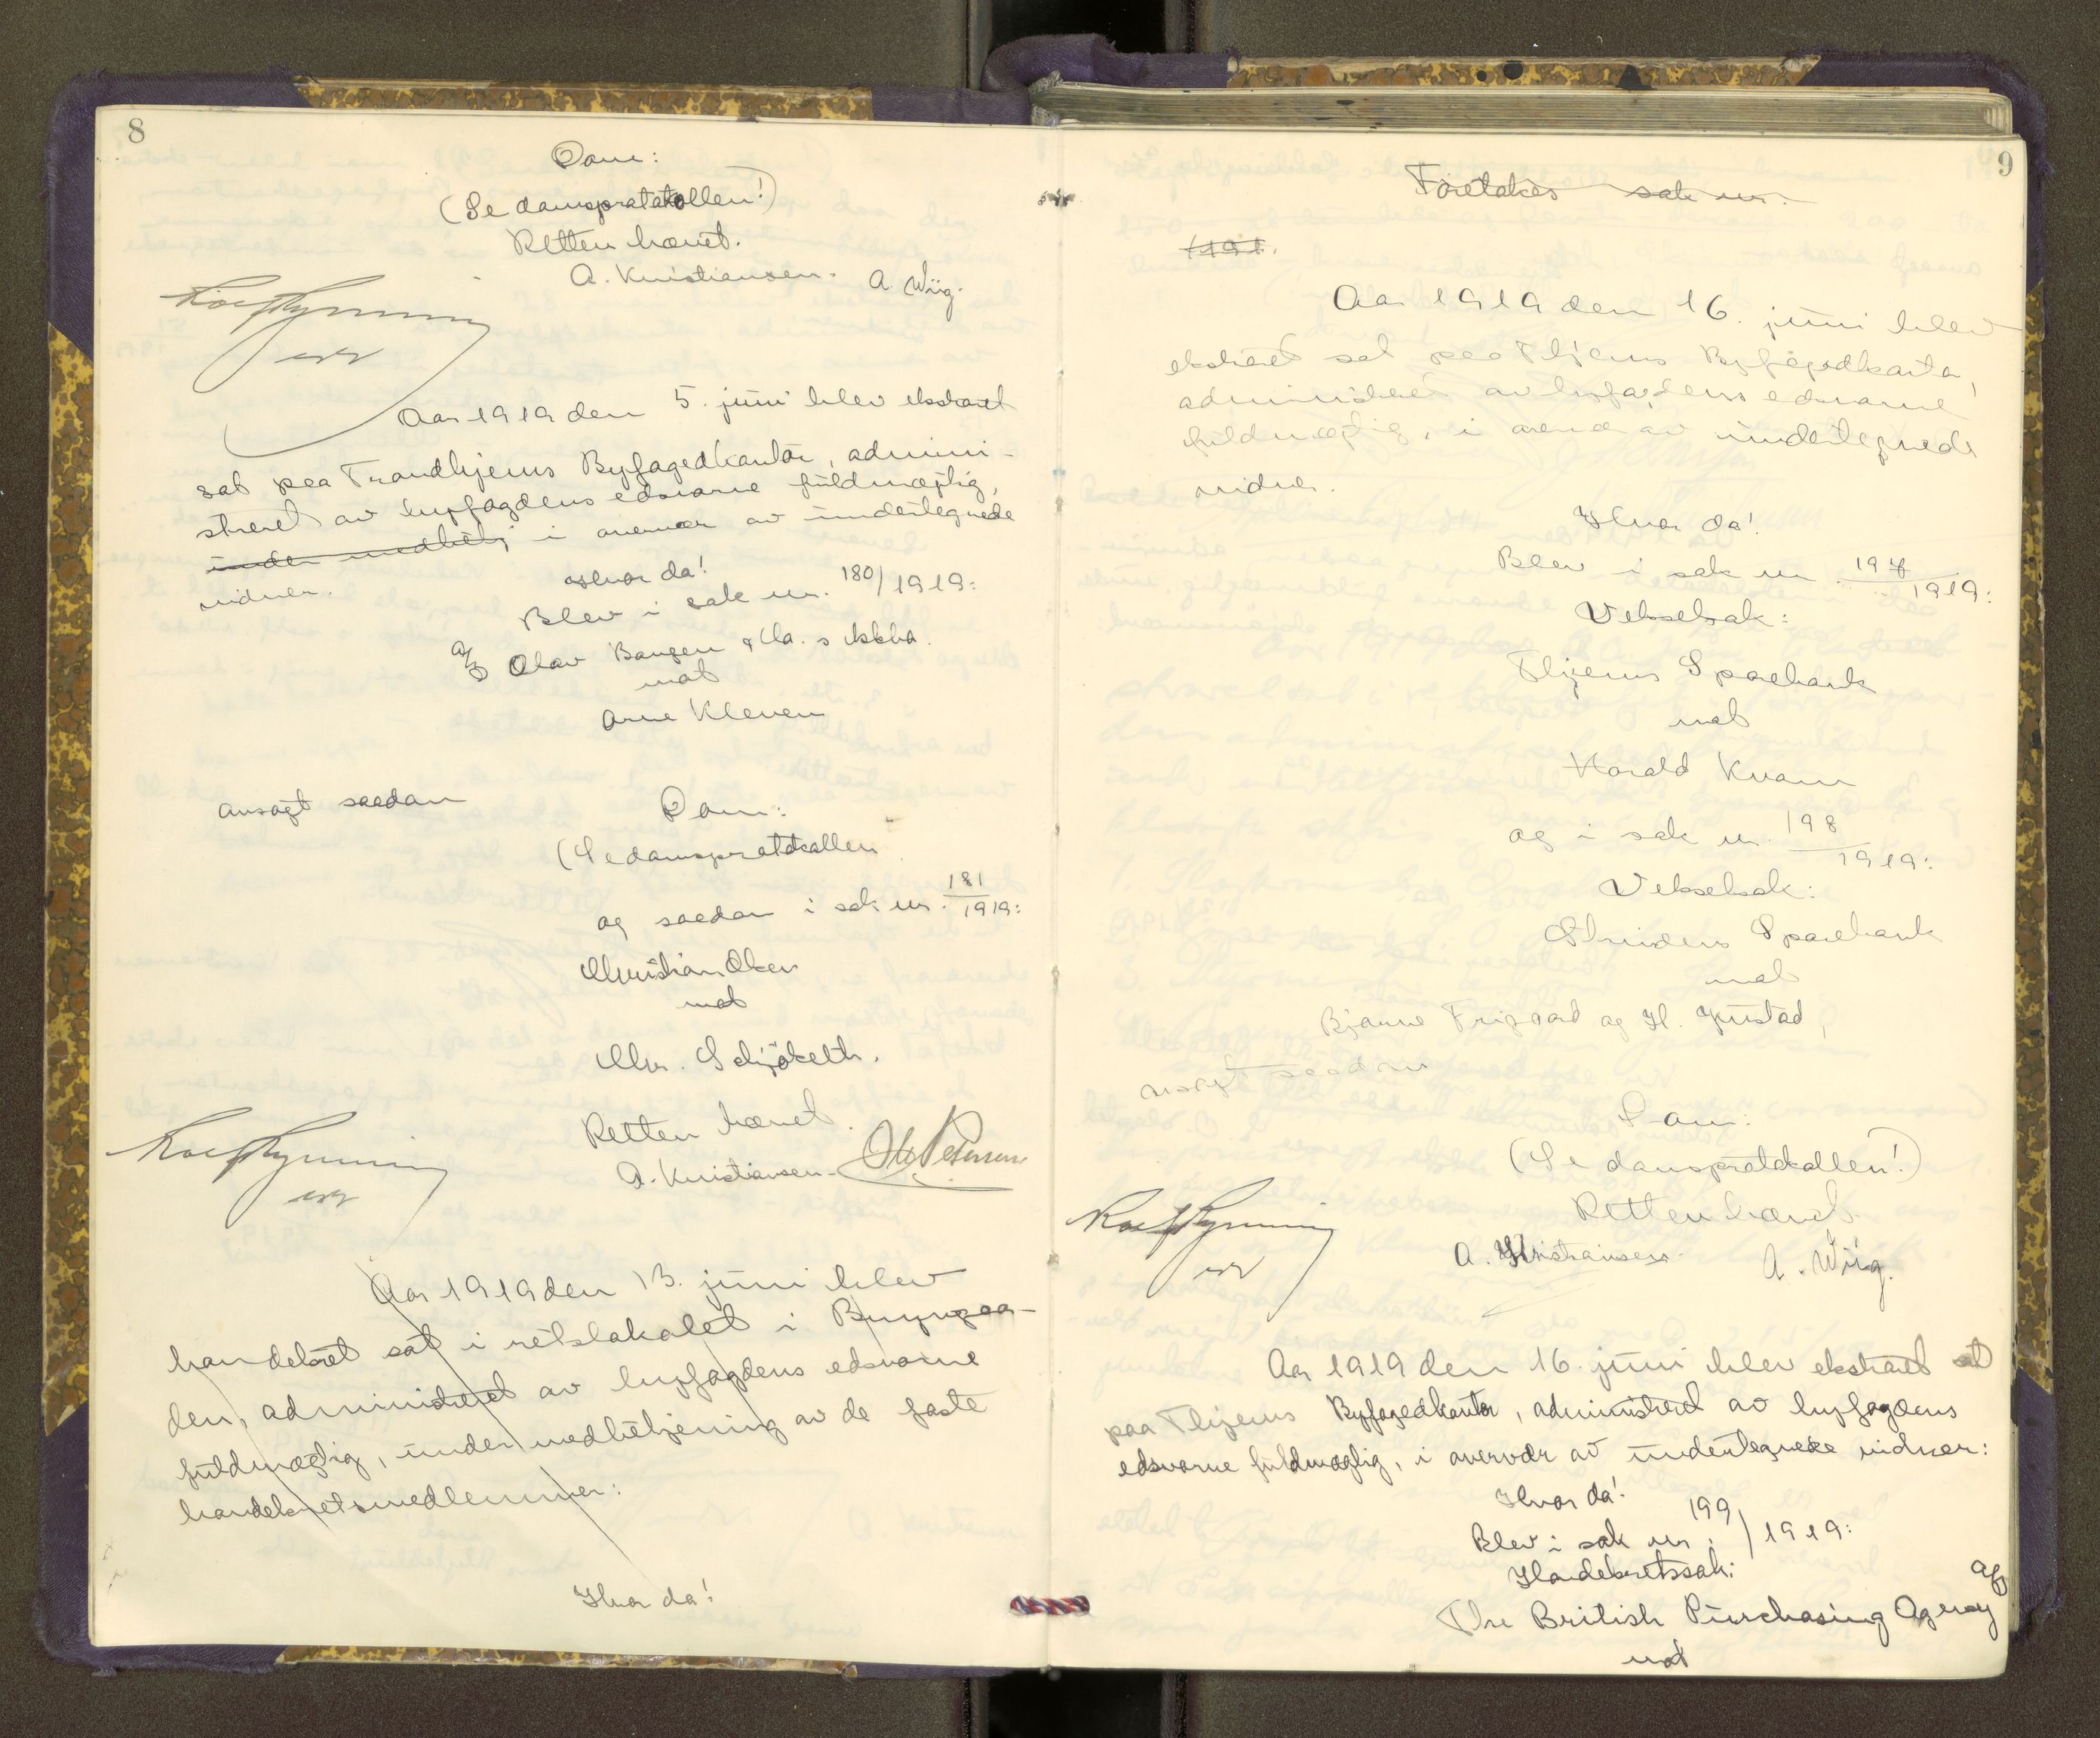 8
Dom:
(Se domsprotokollen!)
Retten hævet.
A. Kristiansen. A. Wiig.
Aar 1919 den 5. juni blev ekstraret
sat paa Trondhjems Byfogedkontor, admini-
streret av byfogdens edsvorne fuldmægtig,
under medhělj i overvær av undertegnede
vidner.
Hvor da!
Blev i sak nr. 180/1919:
A/S Olav Bangen & Co.s
mot
Arne Kleven
avsagt saadan
Dom:
(Se domsprotokollen
og saadan i sak nr. 181/1919:
Christian Olsen
mot
Chr. Schjölseth.
Retten hævet.
A. Kristiansen. Ole Petersen
Aar 1919 den 13. juni blev
handelsret sat i retslokalet i Brynzaa-
den, administreret av byfogdens edsvorne
fuldmægtig, under medbetjening av de faste
handelsretsmedlemmer:
Hvor da!
9
Foretokes sak nr.
1191.
Aar 1919 den 16. juni blev
ekstraret sat paa Thjems Byfogedkontor,
administreret av byfogdens edsvorne
fuldmægtig, i overvær av undertegnede
vidner.
Hvor da!
Blev i sak nr. 197/1919:
Vekselsak:
Thjems Sparebank
mot
Harald Kvam
og i sak nr. 198/1919:
Vekselsak:
Strindens Sparebank
mot
Bjarne Frigaard og H. Gustad,
avsagt saadan
Dom:
(Se domsprotokollen!)
Retten hævet.
A. Kristiansen. A. Wiig.
Aar 1919 den 16. juni blev ekstraret sat
paa Thjems Byfogedkontor, administrert av byfogdens
edsvorne fuldmægtig, i overvær av undertegnede vidner:
Hvor da!
Blev i sak nr. 199/1919:
Handelsretssak:
The British Purchasing Agency A/S
mot